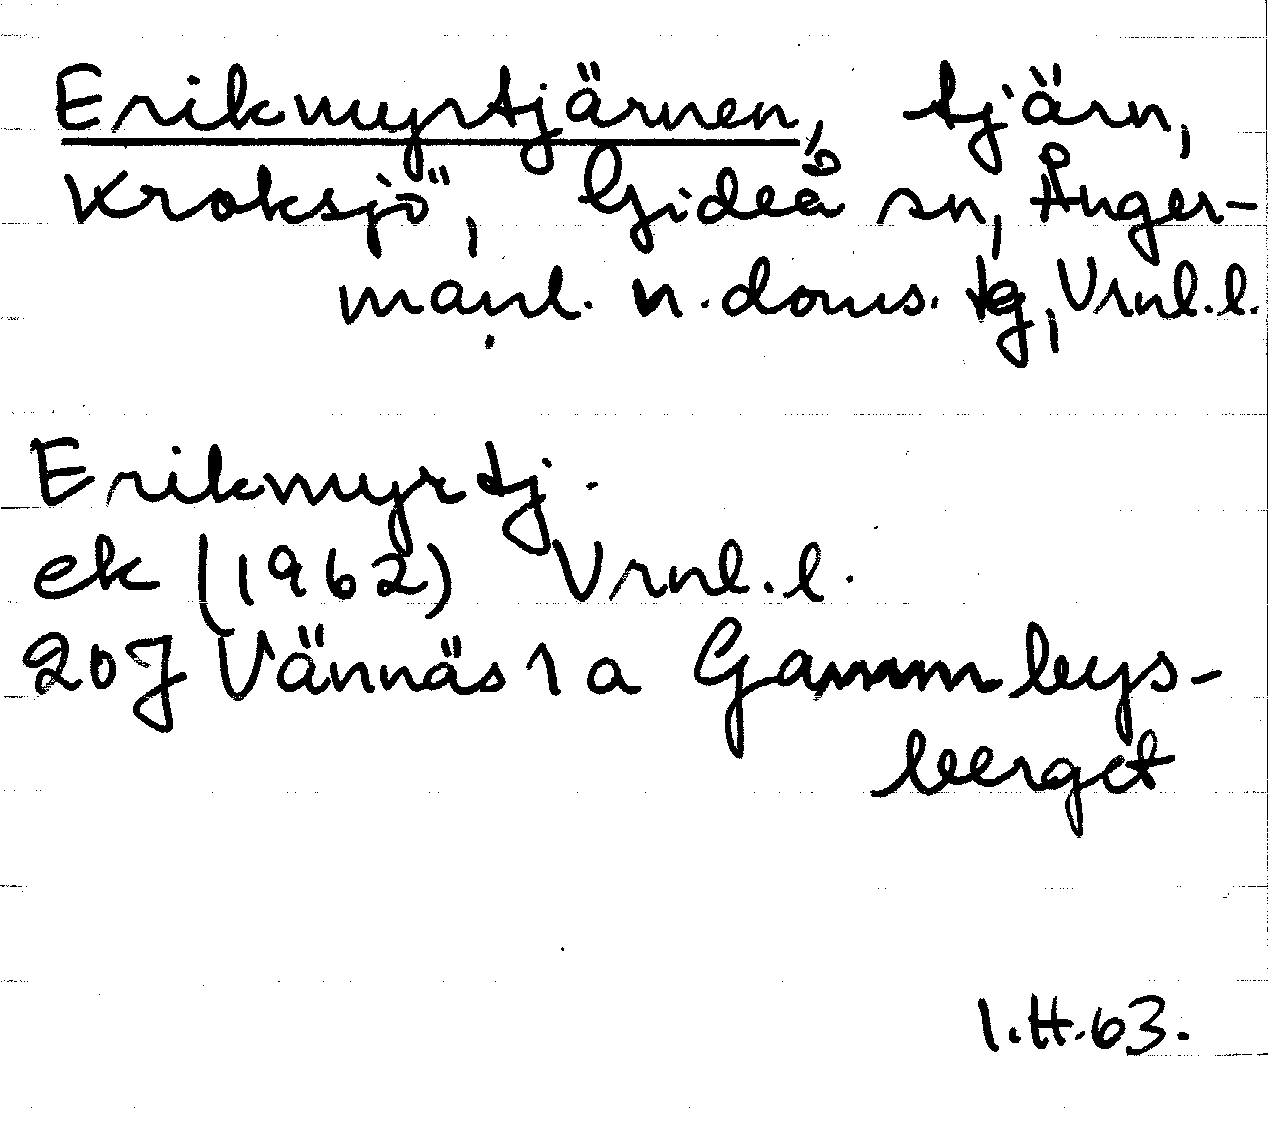 Erikmyrtjärnen, tjärn,
Kroksjö, Gideå sn, Ånger-
manl. n. doms. tg, Vrnl.l.
Erikmyrtj.
ek (1962) Vrnl.l.
20J Vännäs 1 a Gammbys-
berget
I.H.63.